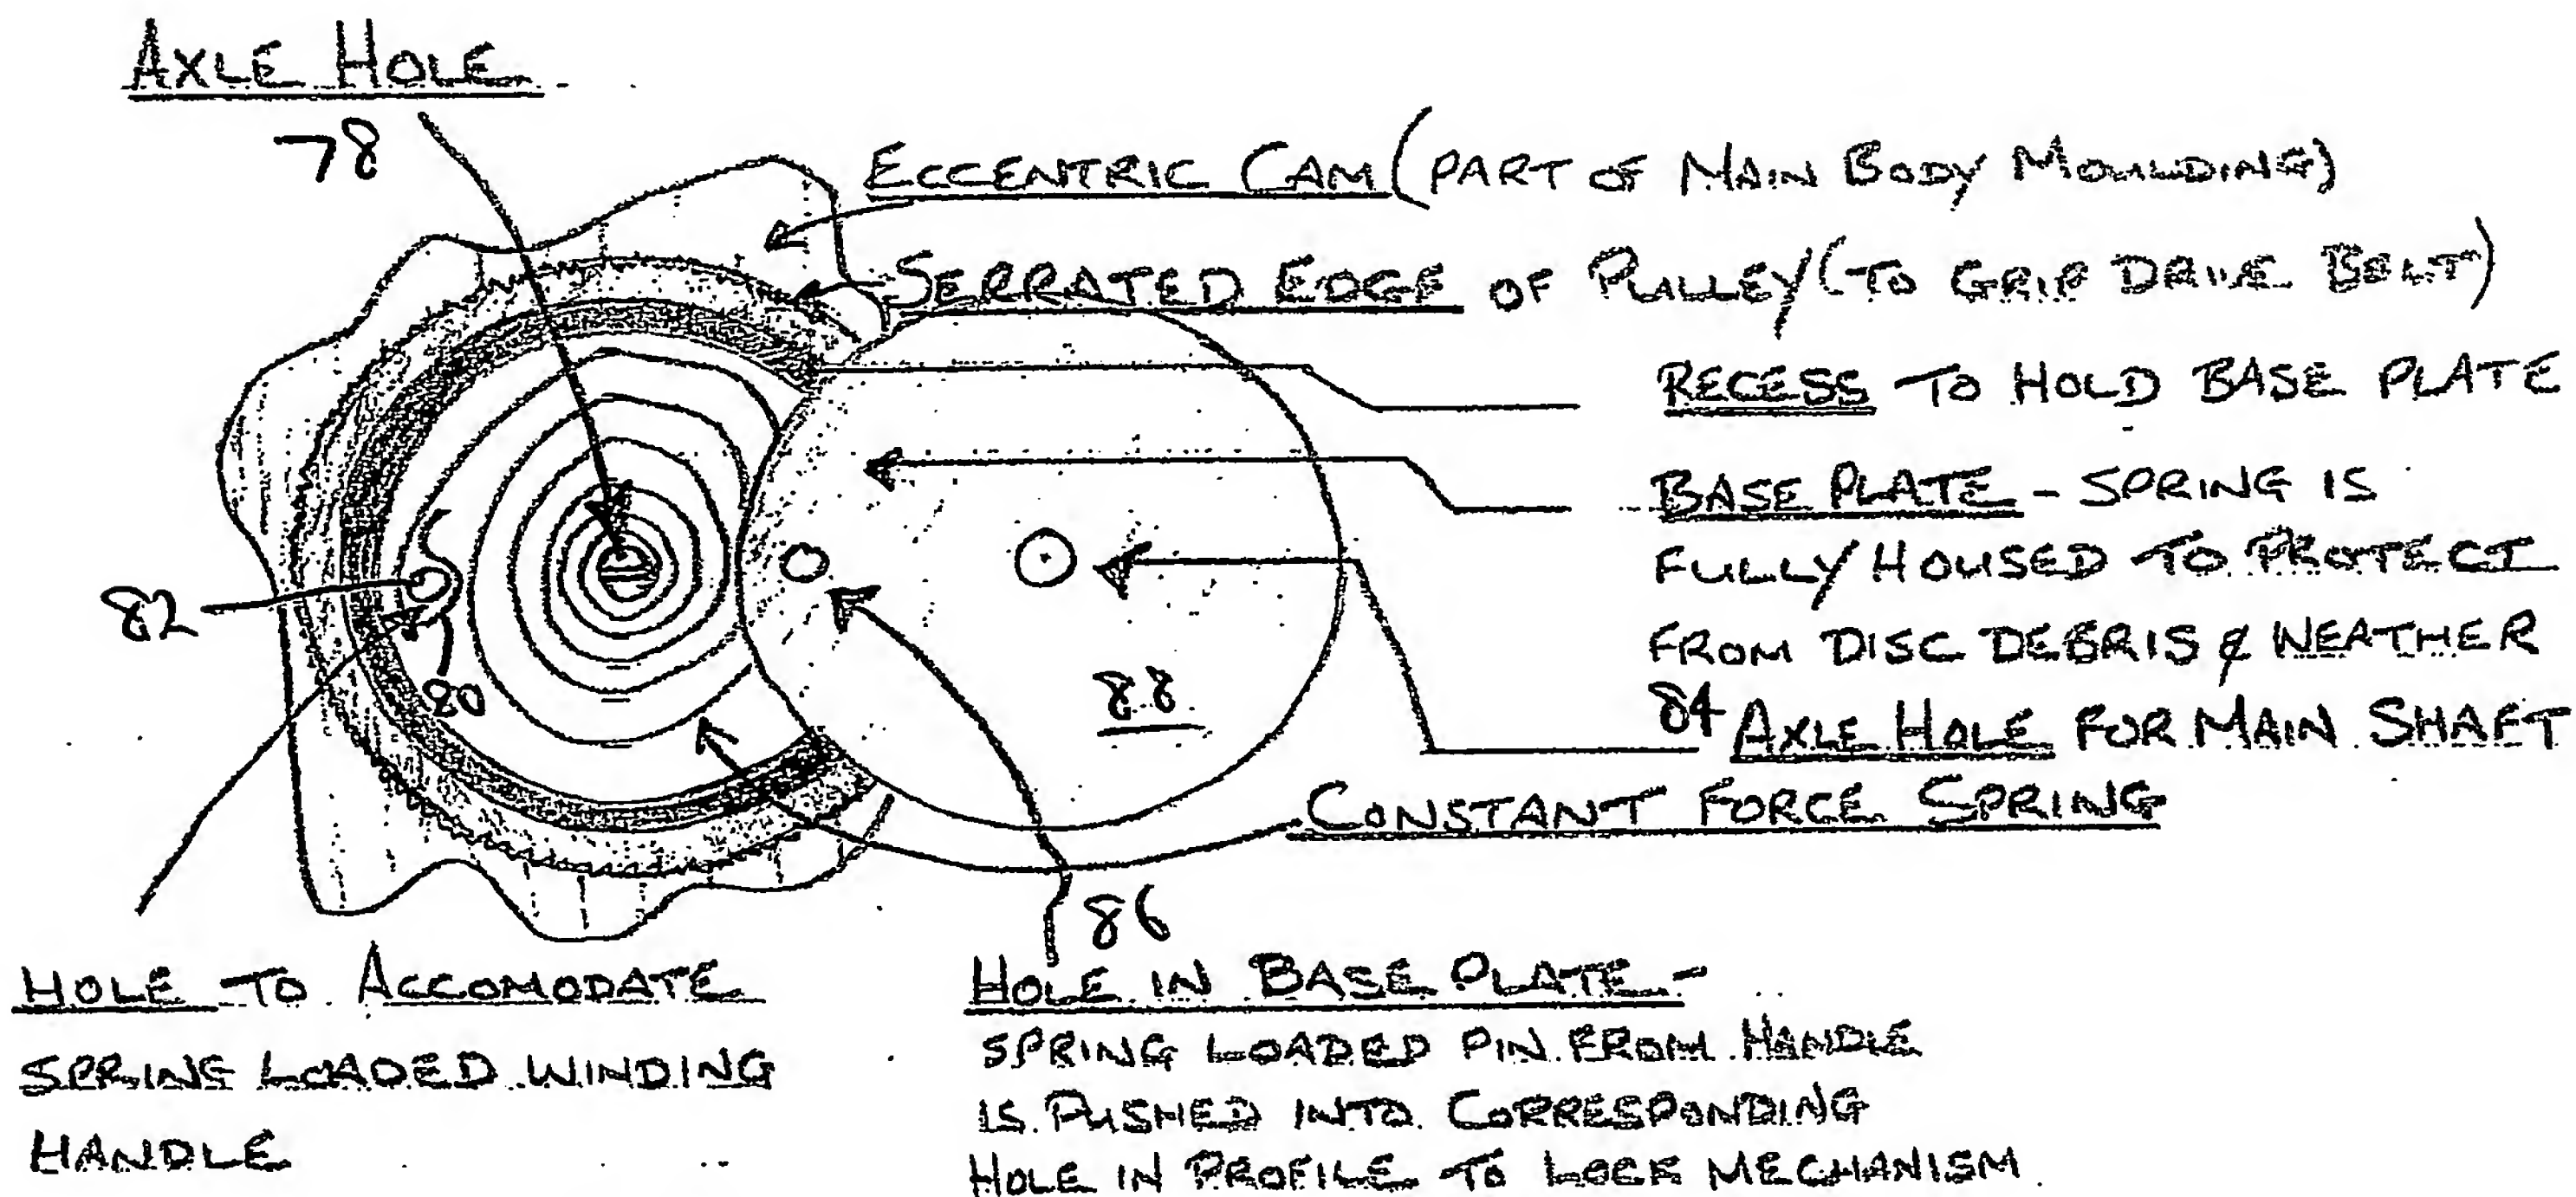 AXLE HOLE
78
ECCENTRIC CAM (PART OF MAIN BODY MOULDING)
SERRATED EDGE OF PULLEY (TO GRIP DRIVE BELT)
RECESS TO HOLD BASE PLATE
BASE PLATE - SPRING IS
FULLY HOUSED TO PROTECT
FROM DISC DEBRIS & WEATHER
84 AXLE HOLE FOR MAIN SHAFT
CONSTANT FORCE SPRING
82
80
88
86
HOLE TO ACCOMODATE
SPRING LOADED WINDING
HANDLE
HOLE IN BASE PLATE -
SPRING LOADED PIN FROM HANDLE
IS PUSHED INTO CORRESPONDING
HOLE IN PROFILE TO LOCK MECHANISM.